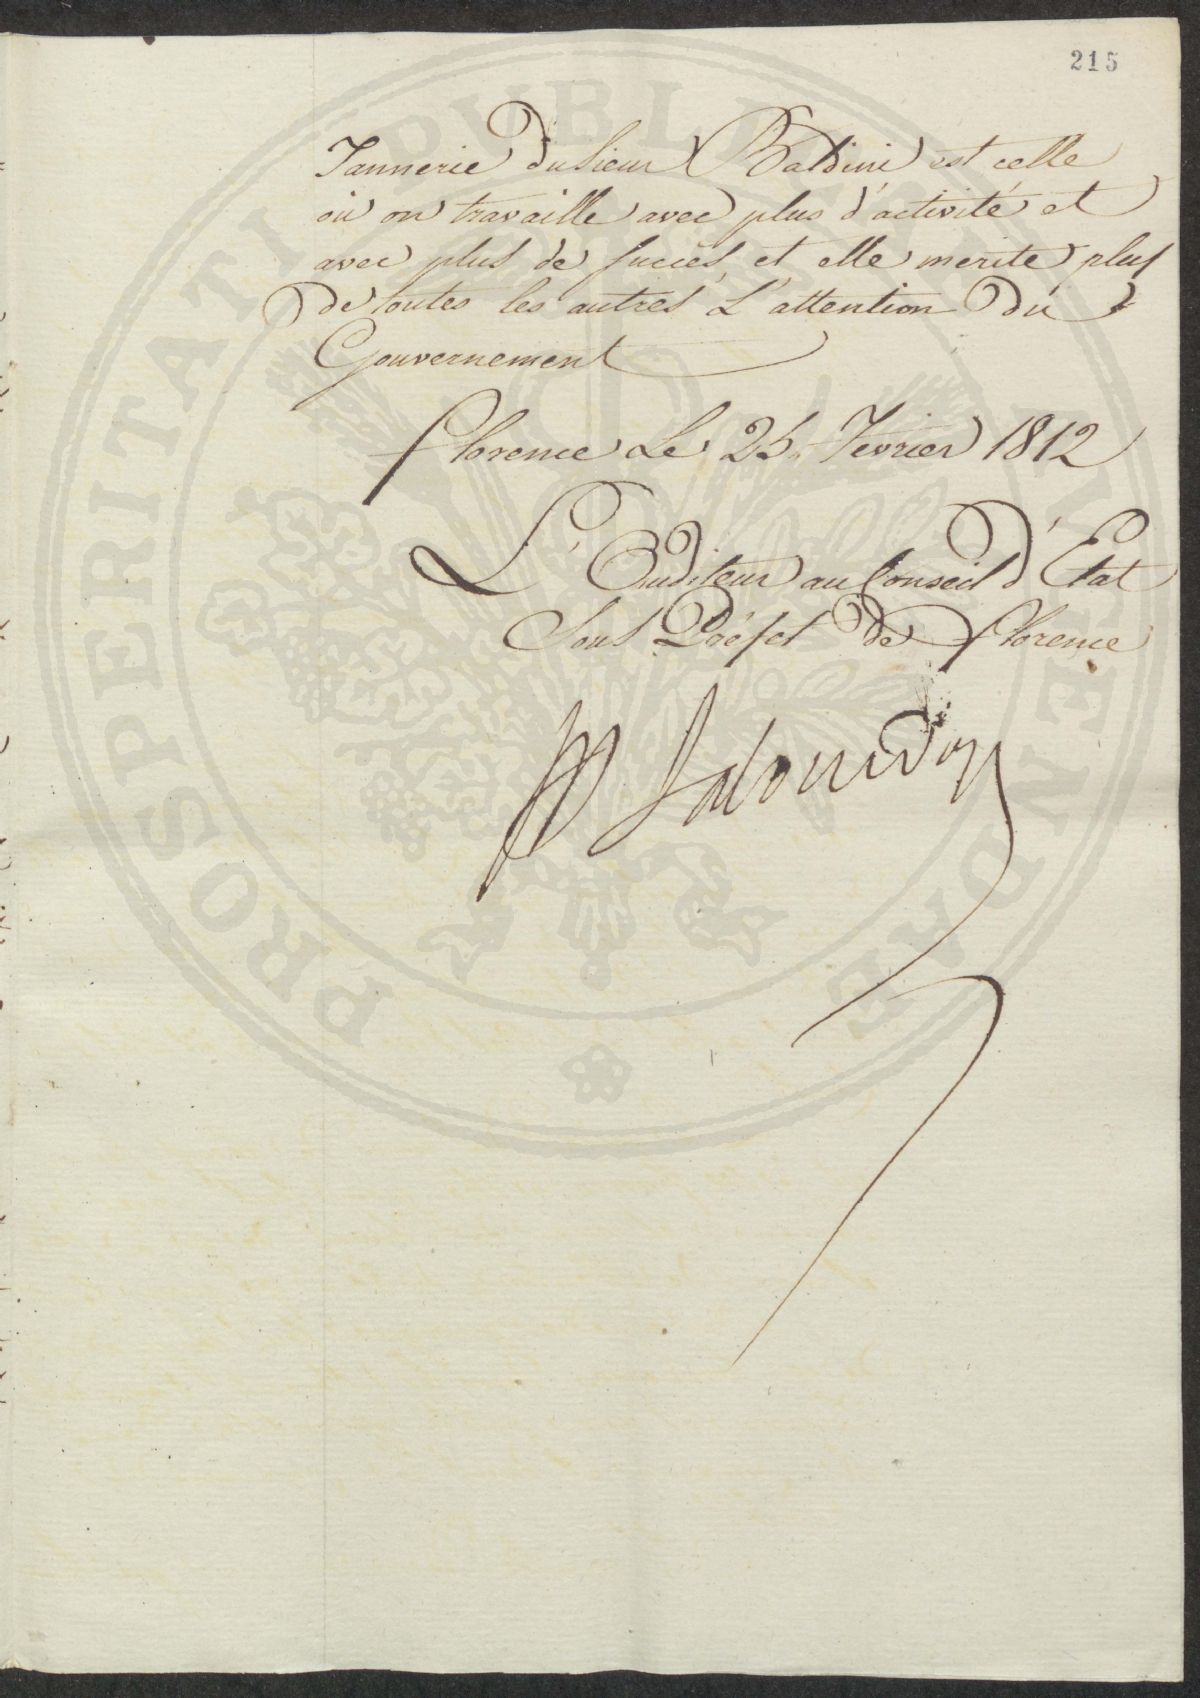 215
Tannerie du Sieur Baldini est celle
où on travaille avec plus d'activité et
avec plus de succès, et elle merite plus
de toutes les autres L'attention du
Gouvernement
Florence Le 25 Fevrier 1812
L'Auditeur au Conseil d'Etat
Sous Préfet de Florence
PROSPERITATI PUBLICAE AUGENDAE